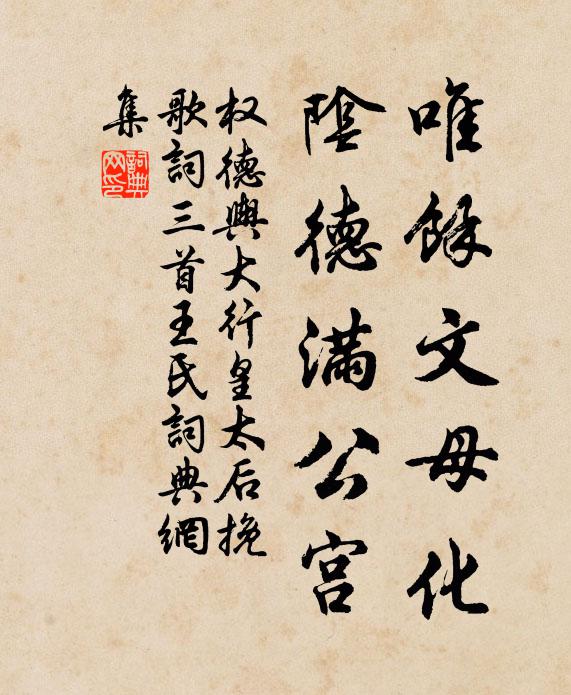 唯餘文母化
陰德滿公宮
权德輿大行皇太后挽
歌詞三首王氏詞典網
集
詞典網印